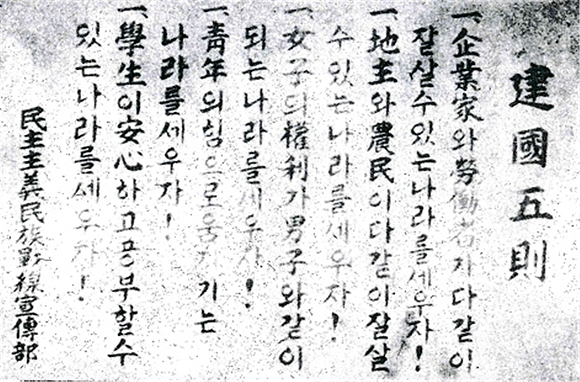 建國五則
一、企業家와勞働者가다같이
잘살수있는나라를세우자!
一、地主와農民이다같이잘살
수있는나라를세우자!
一、女子의權利가男子와같이
되는나라를세우자!
一、靑年의힘으로움지기는
나라를세우자!
一、學生이安心하고공부할수
있는나라를세우자!
民主主義民族戰線宣傳部